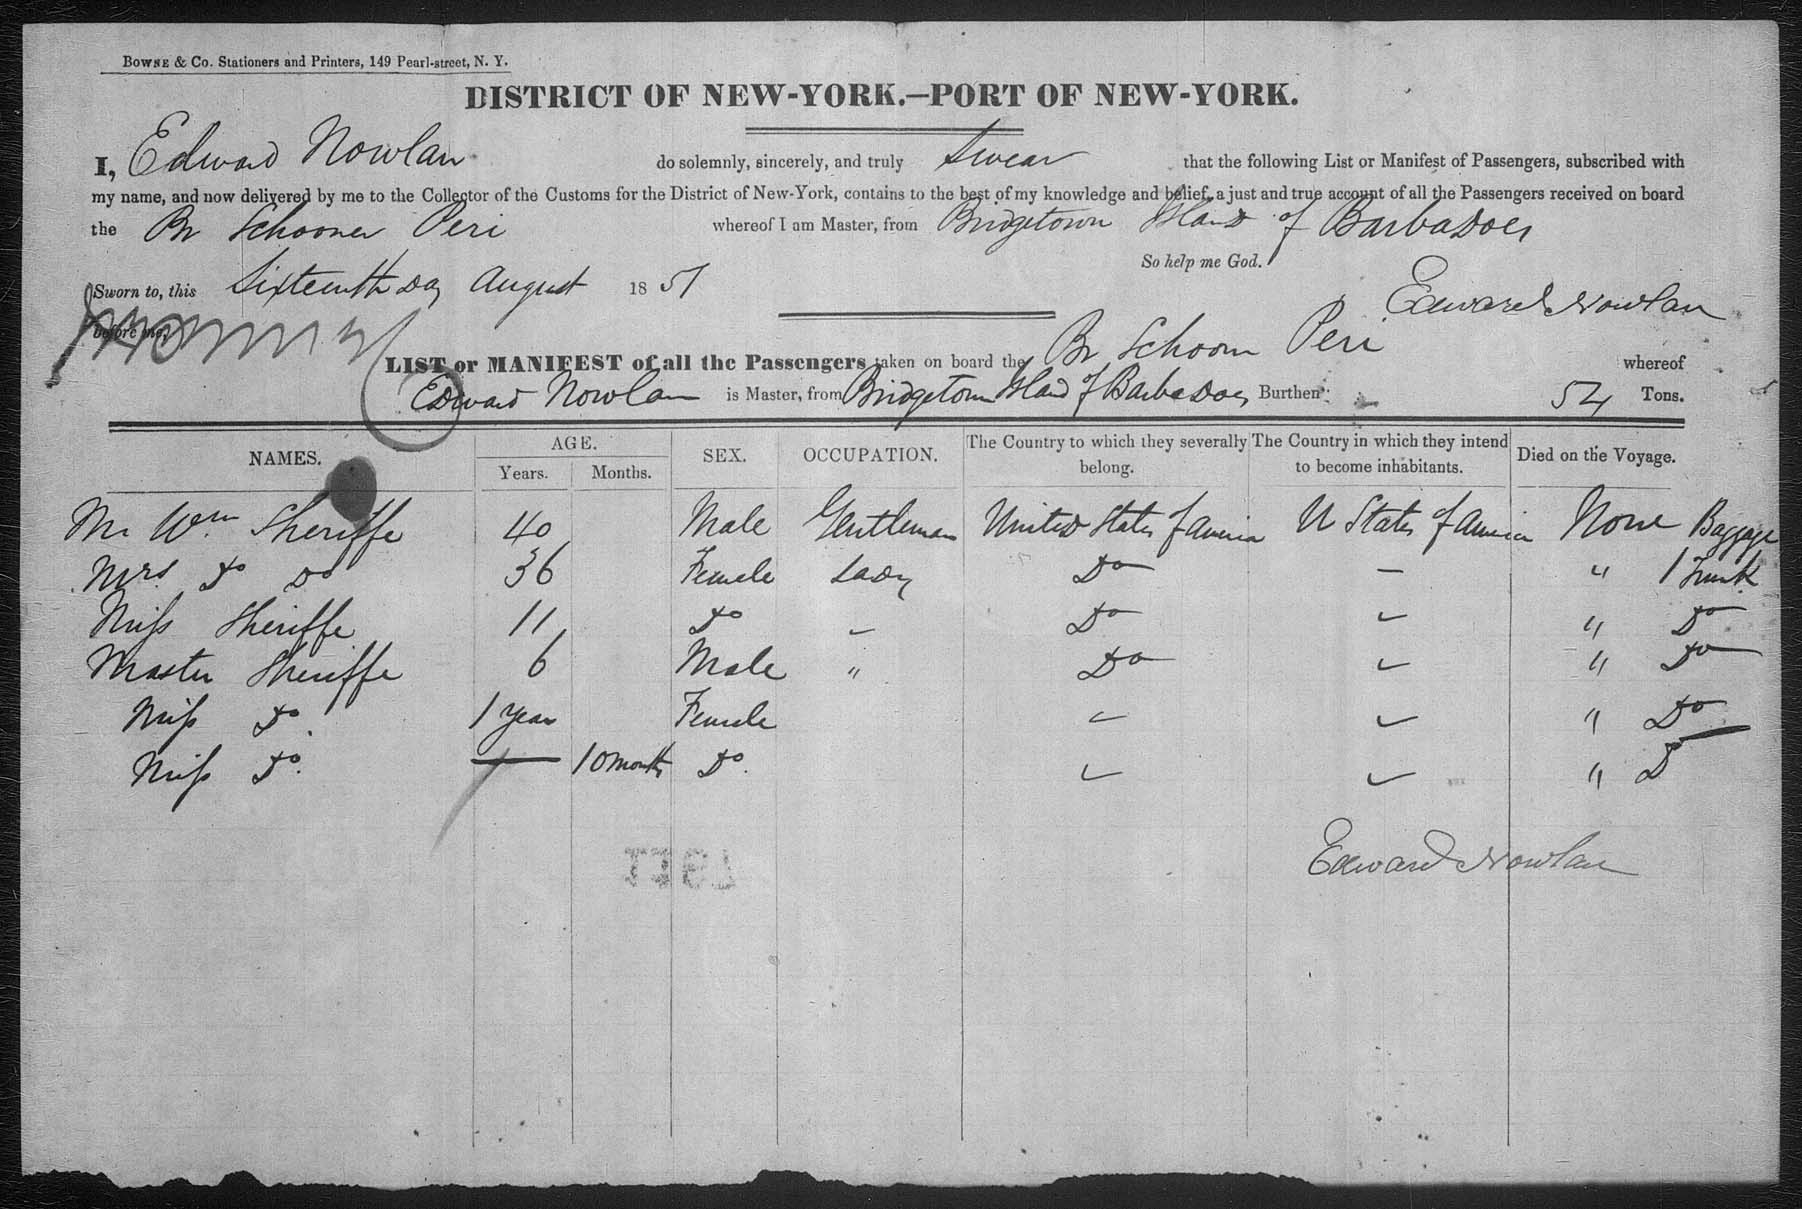 BOWNE & CO. Stationers and Printers, 149 Pearl-street, N. Y.
DISTRICT OF NEW-YORK.—PORT OF NEW-YORK.
I, Edward Nowlan do solemnly, sincerely, and truly Swear that the following List or Manifest of Passengers, subscribed with
my name, and now delivered by me to the Collector of the Customs for the District of New-York, contains to the best of my knowledge and belief, a just and true account of all the Passengers received on board
the Br Schooner Peri whereof I am Master, from Bridgetown Island of Barbadoes
So help me God.
Sworn to, this Sixteenth Day August 1851
Edward Nowlan
before me,
LIST or MANIFEST of all the Passengers taken on board the Br Schoonr Peri whereof
Edward Nowlan is Master, from Bridgetown Island of Barbadoes Burthen 54 Tons.
NAMES. AGE. SEX. OCCUPATION. The Country to which they severally belong. The Country in which they intend to become inhabitants. Died on the Voyage.
Years. Months.
Mr Wm Sheriffe 40 Male Gentleman United States of America U States of America None Baggage
Mrs Do Do 36 Female Lady Do – " 1 Trunk
Miss Sheriffe 11 Do – Do " Do
Master Sheriffe 6 Male " Do " Do
Miss Do. 1 year Female " Do
Miss Do. 10 months Do. " D
Edward Nowlan